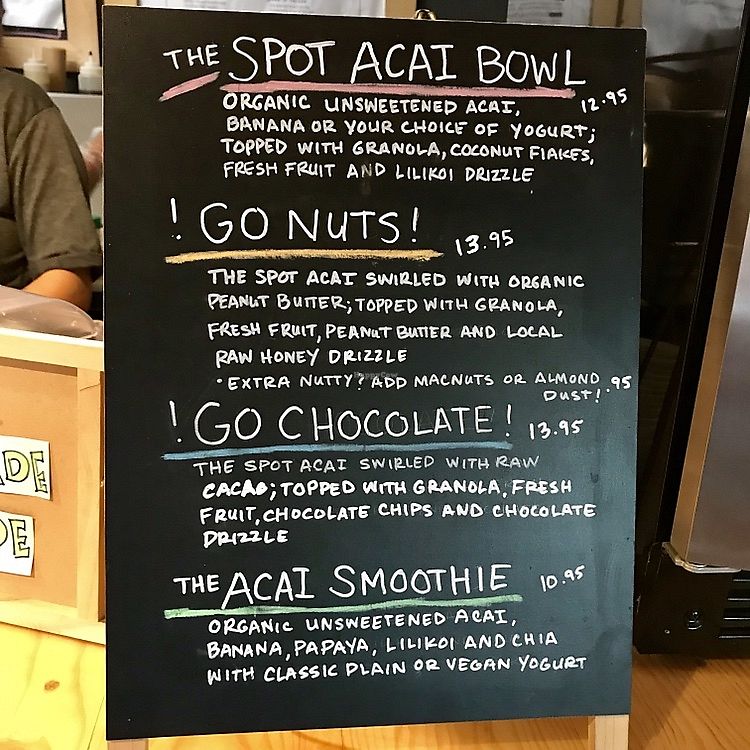 THE SPOT ACAI BOWL
12.95
ORGANIC UNSWEETENED ACAI,
BANANA OR YOUR CHOICE OF YOGURT;
TOPPED WITH GRANOLA, COCONUT FLAKES,
FRESH FRUIT AND LILIKOI DRIZZLE
! GO NUTS!
13.95
THE SPOT ACAI SWIRLED WITH ORGANIC
PEANUT BUTTER; TOPPED WITH GRANOLA,
FRESH FRUIT, PEANUT BUTTER AND LOCAL
RAW HONEY DRIZZLE
• EXTRA NUTTY? ADD MACNUTS OR ALMOND .95
DUST!
! GO CHOCOLATE!
13.95
THE SPOT ACAI SWIRLED WITH RAW
CACAO; TOPPED WITH GRANOLA, FRESH
FRUIT, CHOCOLATE CHIPS AND CHOCOLATE
DRIZZLE
THE ACAI SMOOTHIE
10.95
ORGANIC UNSWEETENED ACAI,
BANANA, PAPAYA, LILIKOI AND CHIA
WITH CLASSIC PLAIN OR VEGAN YOGURT
HappyCow
ADE
DE